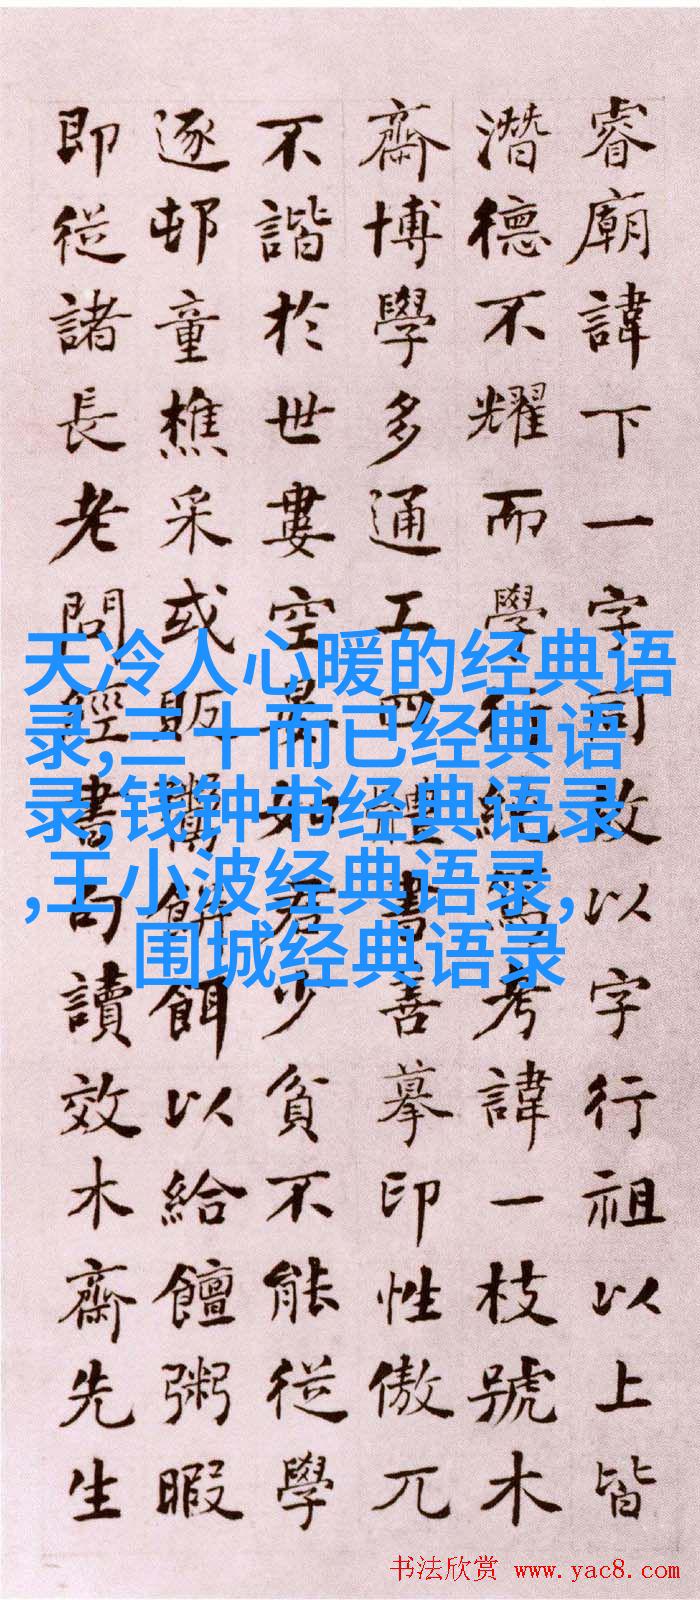 睿廟諱下一字同改以字行祖以上皆
潛德不耀而學行純篤考諱一枝號木
齋博學多通工四體書善摹印性傲兀
不諧於世婁空晏如君少貧不能從學
逐邨童樵采或販鬻餅餌以給饘粥暇
即從諸長老問經書句讀效木齋先生
天冷人心暖的经典语
录,三十而已经典语
录,钱钟书经典语录
,王小波经典语录,
围城经典语录
书法欣赏 www.yac8.com